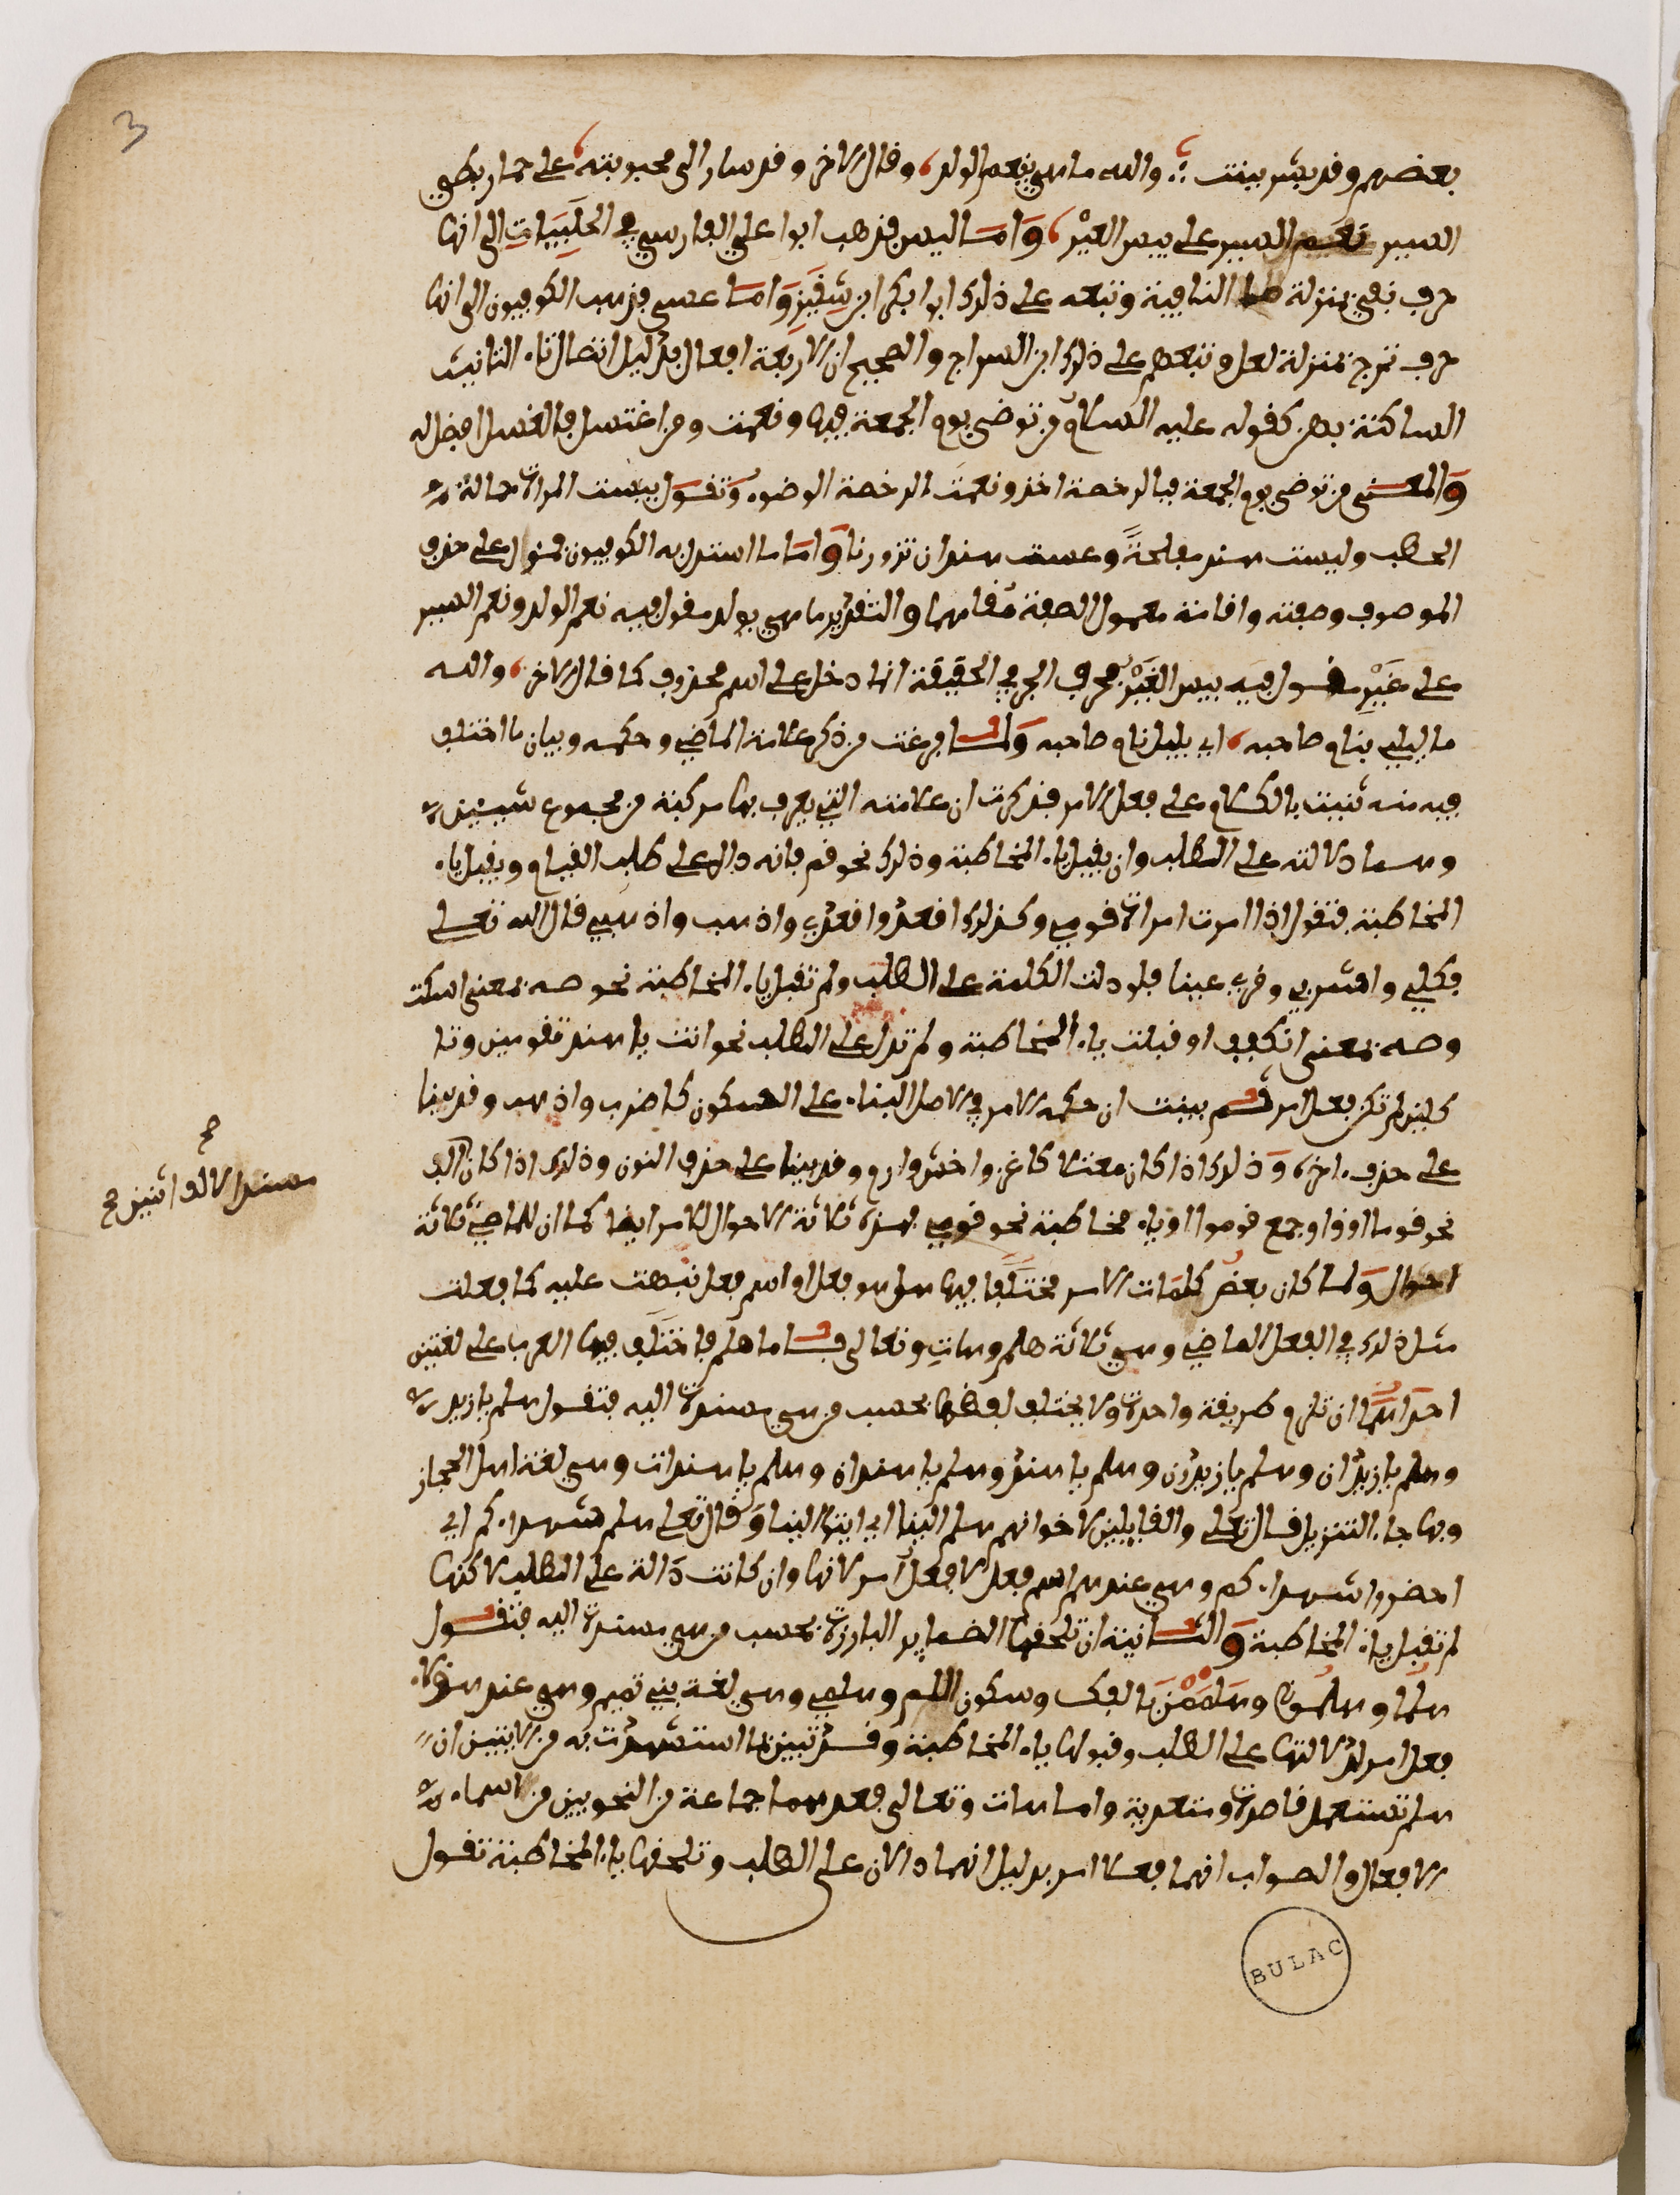 3
بعضهم وقد بشر ببنت والله ما هي بنعم الولد وقال الاخر وقد سار الى محبوبته على حمار بطي
السير نعم السير على بيس العير واما ليس فذهب ابوا علي الفارسي في الحلبيات الى انها
حرف نفي بمنزلة ما النافية وتبعه على ذلك ابوا بكر ابن شقير واما عسى فذهب الكوفيون الى انها
حرف ترج بمنزلة لعل وتبعهم على ذلك ابن السراج والصحيح ان الاربعة افعال بدليل اتصال تاء التانيث
الساكنة بهن كقوله عليه السلام من توضى يوم الجمعة فبها ونعمت ومن اغتسل فالغسل افضل له
والمعنى من توضى يوم الجمعة فبالرخصة اخذ ونعمت الرخصة الوضوء وتقول بيست المراة حمالة
الحطب وليست هند مفلحة وعست هند ان تزورنا واما ما استدل به الكوفيون فمئول على حذف
الموصوف وصفته واقامة معمول الصفة مقامهما والتقدير ما هي بولد مقول فيه نعم الولد ونعم السير
على عير مقول فيه بيس العير فحرف الجر في الحقيقة انما دخل على اسم محذوف كما قال الاخر والله
ما ليلي بنام صاحبه اي بليل نام صاحبه ولما فرغت من ذكر علامة الماضي وحكمه وبيان ما اختلف
فيه منه ثنيت بالكلام على فعل الامر فذكرت ان علامته التي يعرف بها مركبة من مجموع شييين
وهما دلالته على الطلب وان يقبل ياء المخاطبة وذلك نحو قم فانه دال على طلب القيام ويقبل ياء
المخاطبة فتقول اذا امرت امراة قومي وكذلك اقعد واقعدي واذهب واذهبي قال الله تعلى
فكلي واشربي وقري عينا فلو دلت الكلمة على الطلب ولم تقبل ياء المخاطبة نحو صه بمعنى اسكت
ومه بمعنى انكفف او قبلت ياء المخاطبة ولم تدل على الطلب نحو انت يا هند تقومين وتا
كلين لم تكن فعل امر ثم بينت ان حكم الامر في الاصل البناء على السكون كاضرب واذهب وقد يبنا
على حذف اخره وذلك اذا كان معتلا كاغز واخش وارم وقد يبنا على حذف النون وذلك اذا كان
نحو قوما او واو جمع قوموا او ياء مخاطبة نحو قومي فهذه ثلاثة الاحوال للامر ايضا كما ان للماضي ثلاثة
احوال ولما كان بعض كلمات الامر مختلفا فيها هل هو فعل او اسم فعل نبهت عليه كما فعلت
مثل ذلك في الفعل الماضي وهي ثلاثة هلم وهات وتعالى فاما هلم فاختلف فيها العرب على لغتين
احداهما ان تلزم طريقة واحدة ولا يختلف لفظها بحسب من هي مسندة اليه فتقول هلم يا زيد
وهلم يا زيدان وهلم يا زيدون وهلم يا هند وهلم يا هندان وهلم يا هندات وهي لغة اهل الحجاز
وبها جاء التنزيل قال تعلى والقايلين لاخوانهم هلم الينا اي ايتوا الينا وقال تعلى هلم شهداءكم اي
احضروا شهداءكم وهي عندهم اسم فعل لا فعل امر لانها وان كانت دالة على الطلب لاكنها
لم تقبل ياء المخاطبة والثانية ان تلحقها الضماير البارزة بحسب من هي مسندة اليه فتقول
هلما وهلموا وهلممن بالفك وسكون اللام وهلمي وهي لغة بني تميم وهي عند هؤلاء
فعل امر لدلالتها على الطلب وقبولها ياء المخاطبة وقد تبين بما استشهدت به من الايتين ان
هلم تستعمل قاصرة ومتعدية واما هات وتعالى فعدهما جماعة من النحويين من اسماء
الافعال والصواب انهما فعلا امر بدليل انهما دالان على الطلب وتلحقها ياء المخاطبة تقول
صح
مسندا لالف اثنين صح
BULAC